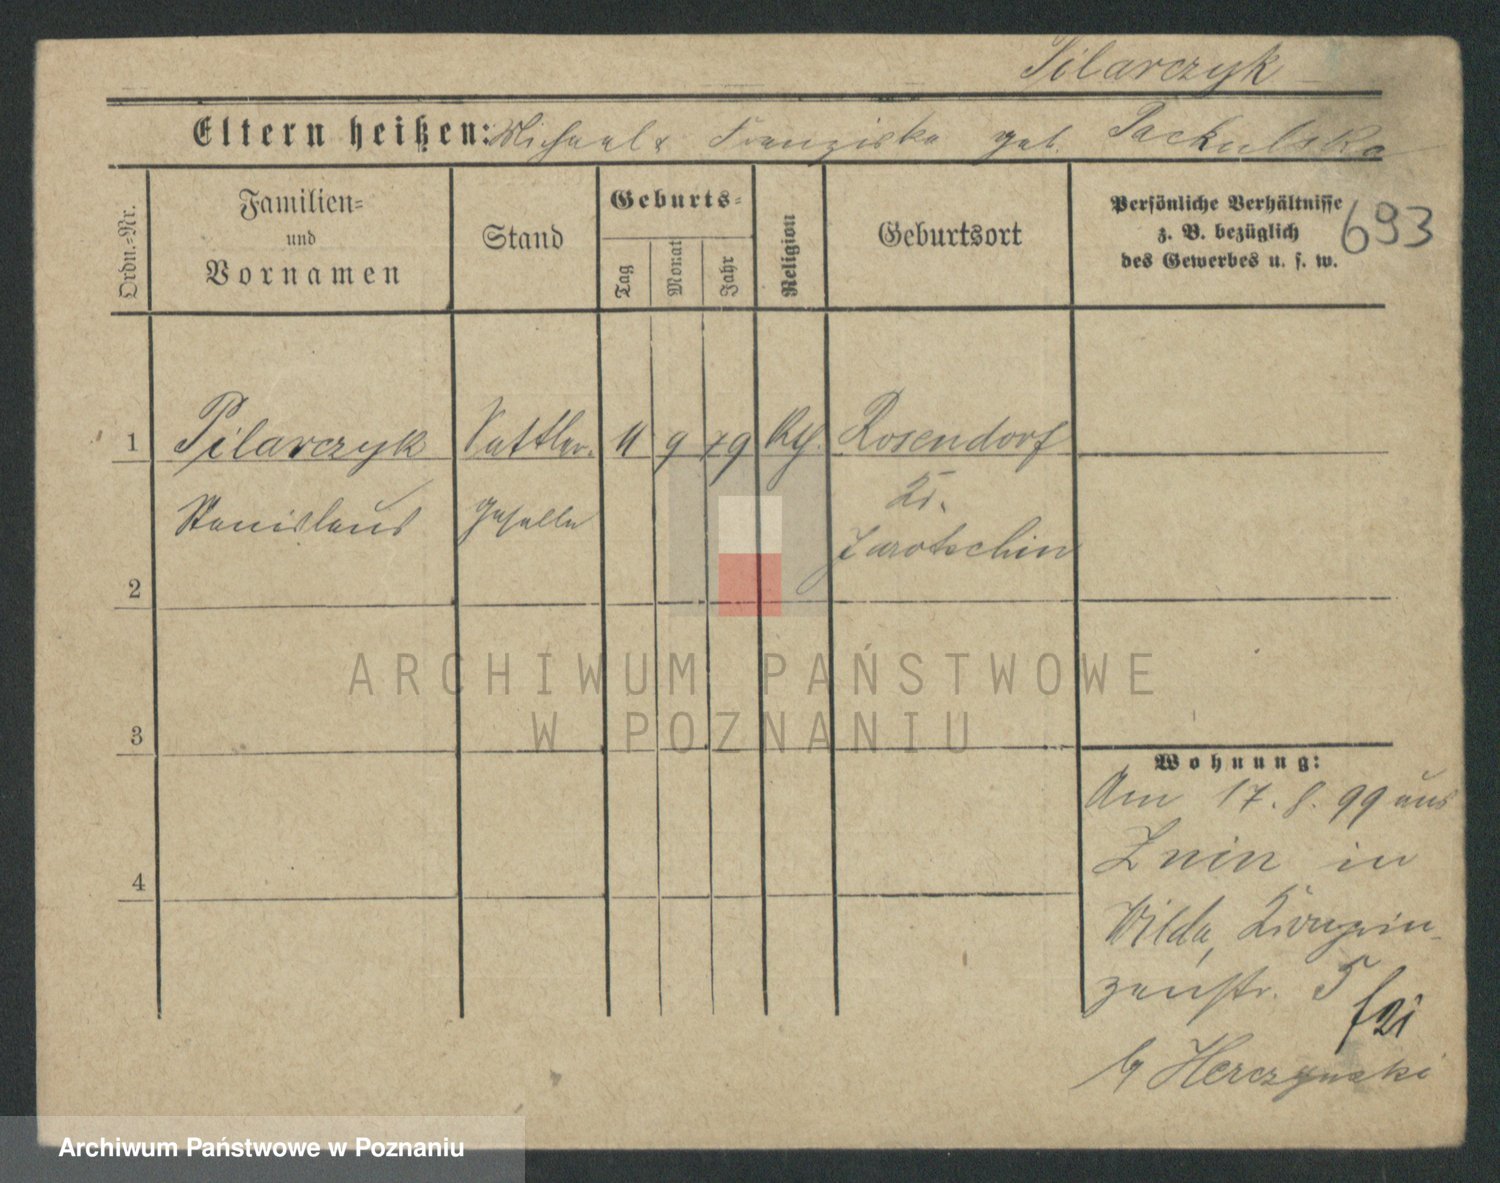 Pilarczyk
Eltern heißen: Michael & Franziska geb. Packulska
Ordn.-Nr.
Familien-
und
Vornamen
Stand
Geburts-
Tag
Monat
Jahr
Religion
Geburtsort
Persönliche Verhältnisse
z. B. bezüglich
des Gewerbes u. s. w.
693
1 Pilarczyk Sattler- 11 9 79 Rosendorf
Stanislaus geselle Kr.
Jarotschin
2
3
4
Wohnung:
Am 17. 8. 99 aus
Znin in
Wilda, Kronprin-
zenstr. 5
Herczynski
ARCHIWUM PAŃSTWOWE
W POZNANIU
Archiwum Państwowe w Poznaniu